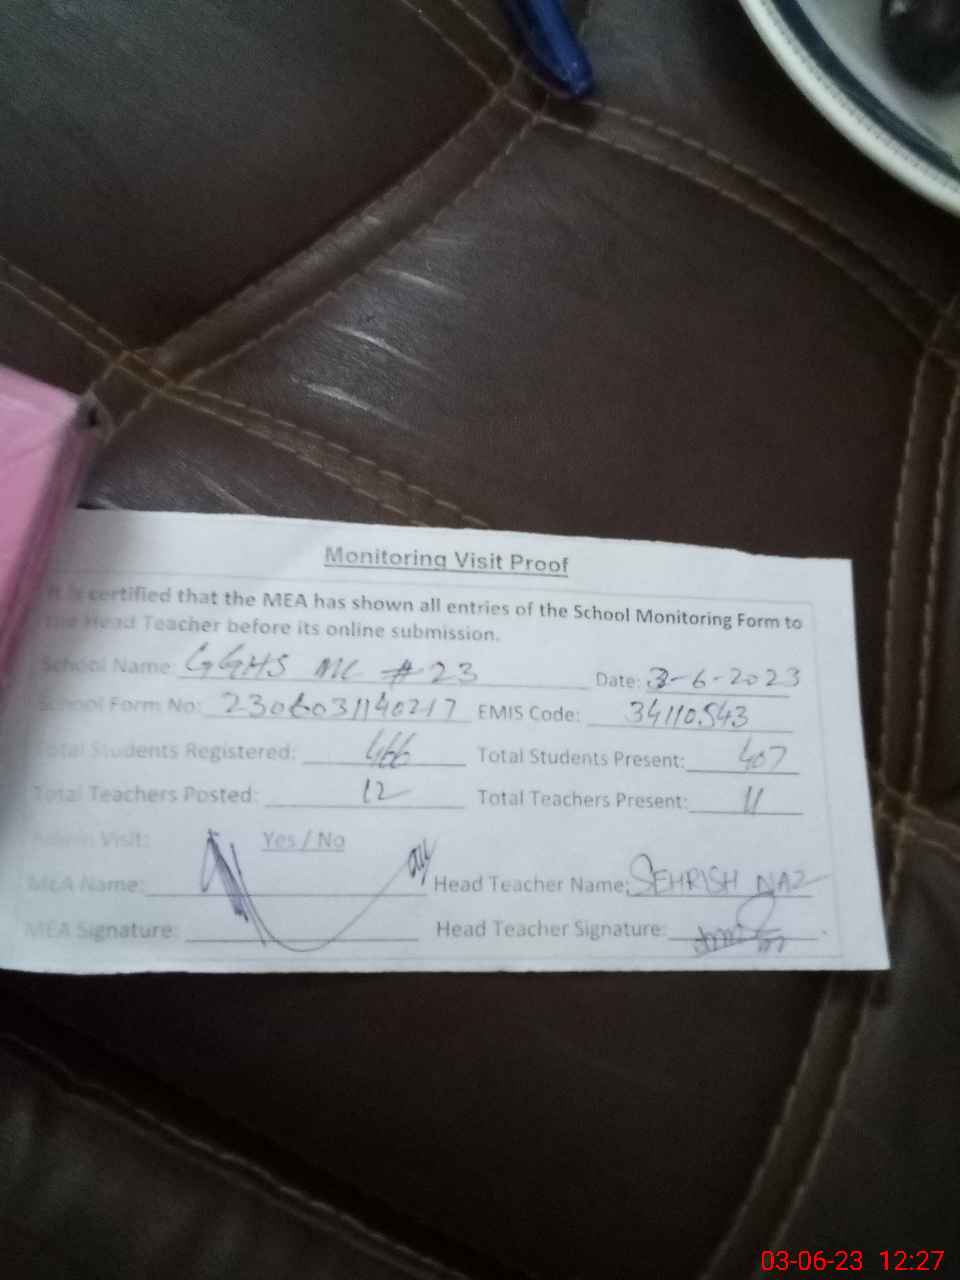 Monitoring Visit Proof
It is certified that the MEA has shown all entries of the School Monitoring Form to
the Head Teacher before its online submission.
School Name: GGHS MC # 23 Date: 3-6-2023
School Form No: 2306031140217 EMIS Code: 34110543
Total Students Registered: 466 Total Students Present: 407
Total Teachers Posted: 12 Total Teachers Present: 11
Admin Visit: Yes / No
MEA Name: Head Teacher Name: SEHRISH NAZ
MEA Signature: Head Teacher Signature:
03-06-23 12:27